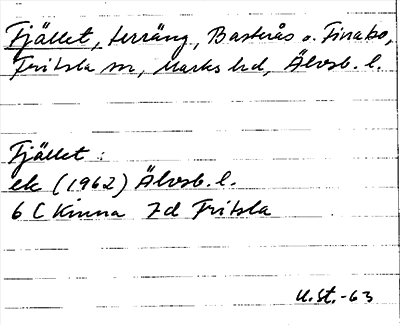 Fjället, terräng, Basterås o. Finabo,
Fritsla sn, Marks hd, Älvsb. l.
Fjället:
ek (1962) Älvsb. l.
6 C Kinna 7d Fritsla
U.St.-63